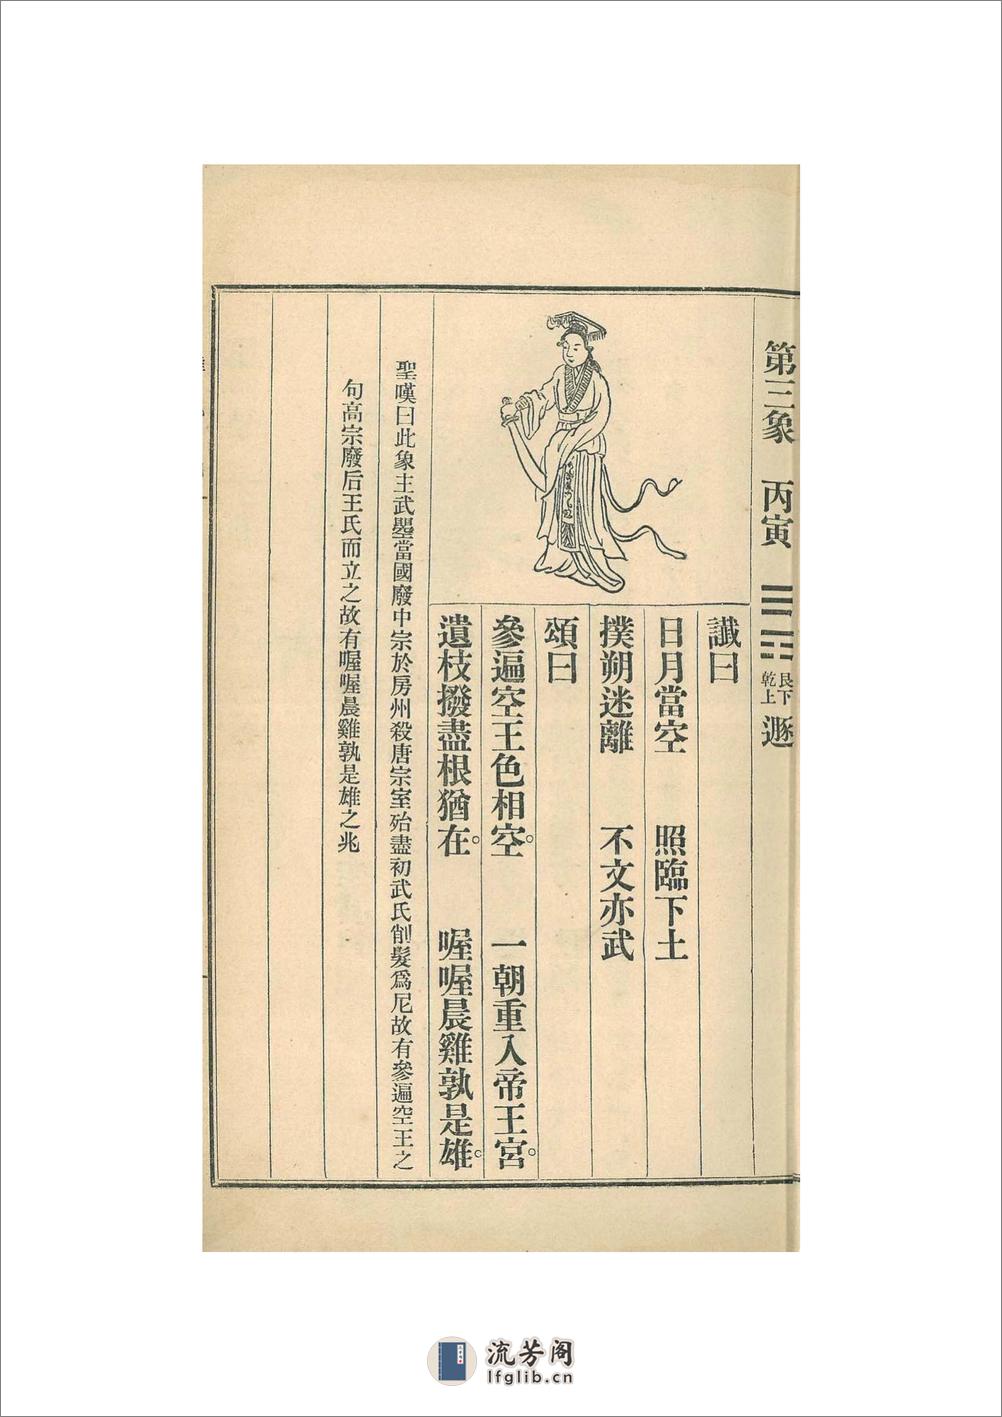 第三象 丙寅 ䷠ 艮下乾上 遯
讖曰
日月當空 照臨下土
撲朔迷離 不文亦武
頌曰
參遍空王色相空。 一朝重入帝王宮。
遺枝撥盡根猶在。 喔喔晨雞孰是雄。
聖嘆曰此象主武曌當國廢中宗於房州殺唐宗室殆盡初武氏削髮為尼故有參遍空王之
句高宗廢后王氏而立之故有喔喔晨雞孰是雄之兆
流芳阁
lfglib.cn